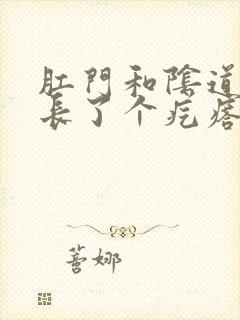 肛門和陰道
長了个疙瘩
蓍娜